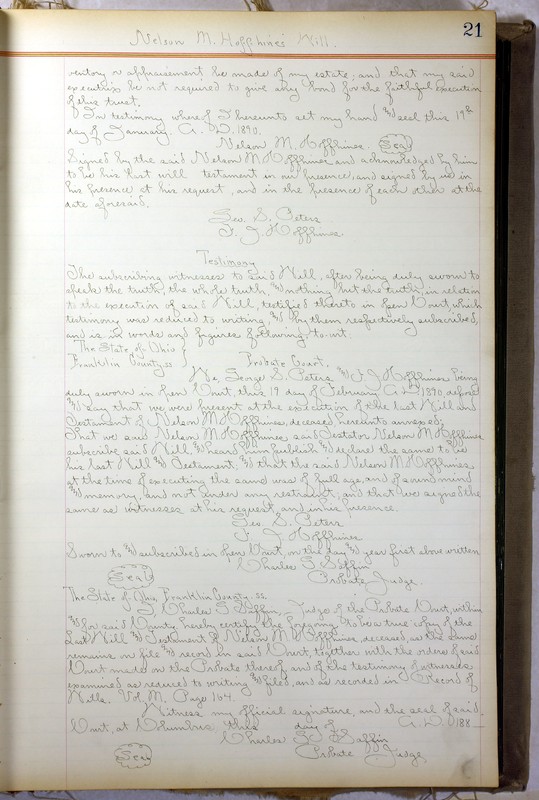 21
Nelson M. Hoffhines Will.
ventory or appraisement be made of my estate; and that my said
executrix be not required to give any bond for the faithful execution
of this trust.
In testimony whereof I hereunto set my hand and seal this 19th
day of January. A.D. 1890.
Nelson M. Hoffhines. Seal
Signed by the said Nelson M Hoffhines and acknowledged by him
to be his last will testament in our presence, and signed by us in
his presence at his request, and in the presence of each other at the
date aforesaid.
Geo. S. Peters
F. J. Hoffhines.
Testimony
The subscribing witnesses to said Will, after being duly sworn to
speak the truth, the whole truth and nothing but the truth, in relation
to the execution of said Will, testified thereto in open Court, which
testimony was reduced to writing, and by them respectively subscribed,
and is in words and figures following, to-wit:
The State of Ohio }
Franklin County, ss } Probate Court.
We, George S. Peters and F J Hoffhines being
duly sworn in open Court, this 19 day of February A.D. 1890, depose
and say that we were present at the execution of the last Will and
Testament of Nelson M Hoffhines, deceased hereunto annexed;
That we saw said Testator Nelson M Hoffhines
subscribe said Will, and heard him publish and declare the same to be
his last Will and Testament, and that the said Nelson M Hoffhines,
at the time of executing the same, was of full age, and of sound mind
and memory, and not under any restraint, and that we signed the
same as witnesses at his request, and in his presence.
Geo. S. Peters
F. J. Hoffhines
Sworn to and subscribed in open Court, on the day and year first above written
Charles G. Saffin
Seal Probate Judge.
The State of Ohio, Franklin County, ss.
I, Charles G Saffin, Judge of the Probate Court, within
and for said County, hereby certify the foregoing to be a true copy of the
Last Will and Testament of Nelson M Hoffhines, deceased, as the same
remains on file and record in said Court, together with the orders of said
Court made on the Probate thereof and of the testimony of witnesses
examined as reduced to writing and filed, and as recorded in Record of
Wills. Vol. M. Page 164.
Witness my official signature, and the seal of said
Court, at Columbus, this day of A.D. 188
Charles G Saffin
Seal Probate Judge